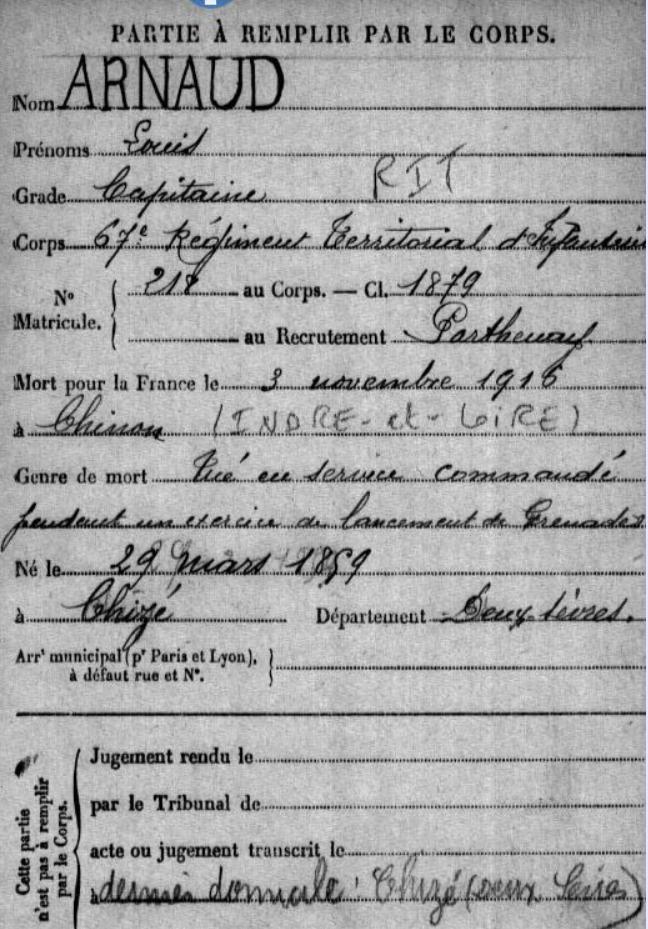 PARTIE À REMPLIR PAR LE CORPS.
Nom ARNAUD
Prénoms Louis
RIT
Grade Capitaine
Corps 67e Régiment Territorial d'Infanterie
Nº Matricule. 218 au Corps. — Cl. 1879
au Recrutement Parthenay
Mort pour la France le 3 novembre 1916
à Chinon (INDRE-et-LOIRE)
Genre de mort Tué en service commandé
pendant un exercice de lancement de Grenades
Né le 29 mars 1859
à Chizé Département Deux-Sèvres.
Arrt municipal (pr Paris et Lyon),
à défaut rue et Nº.
Cette partie n'est pas à remplir par le Corps.
Jugement rendu le
par le Tribunal de
acte ou jugement transcrit le
à dernier domicile : Chizé (Deux Sèvres)